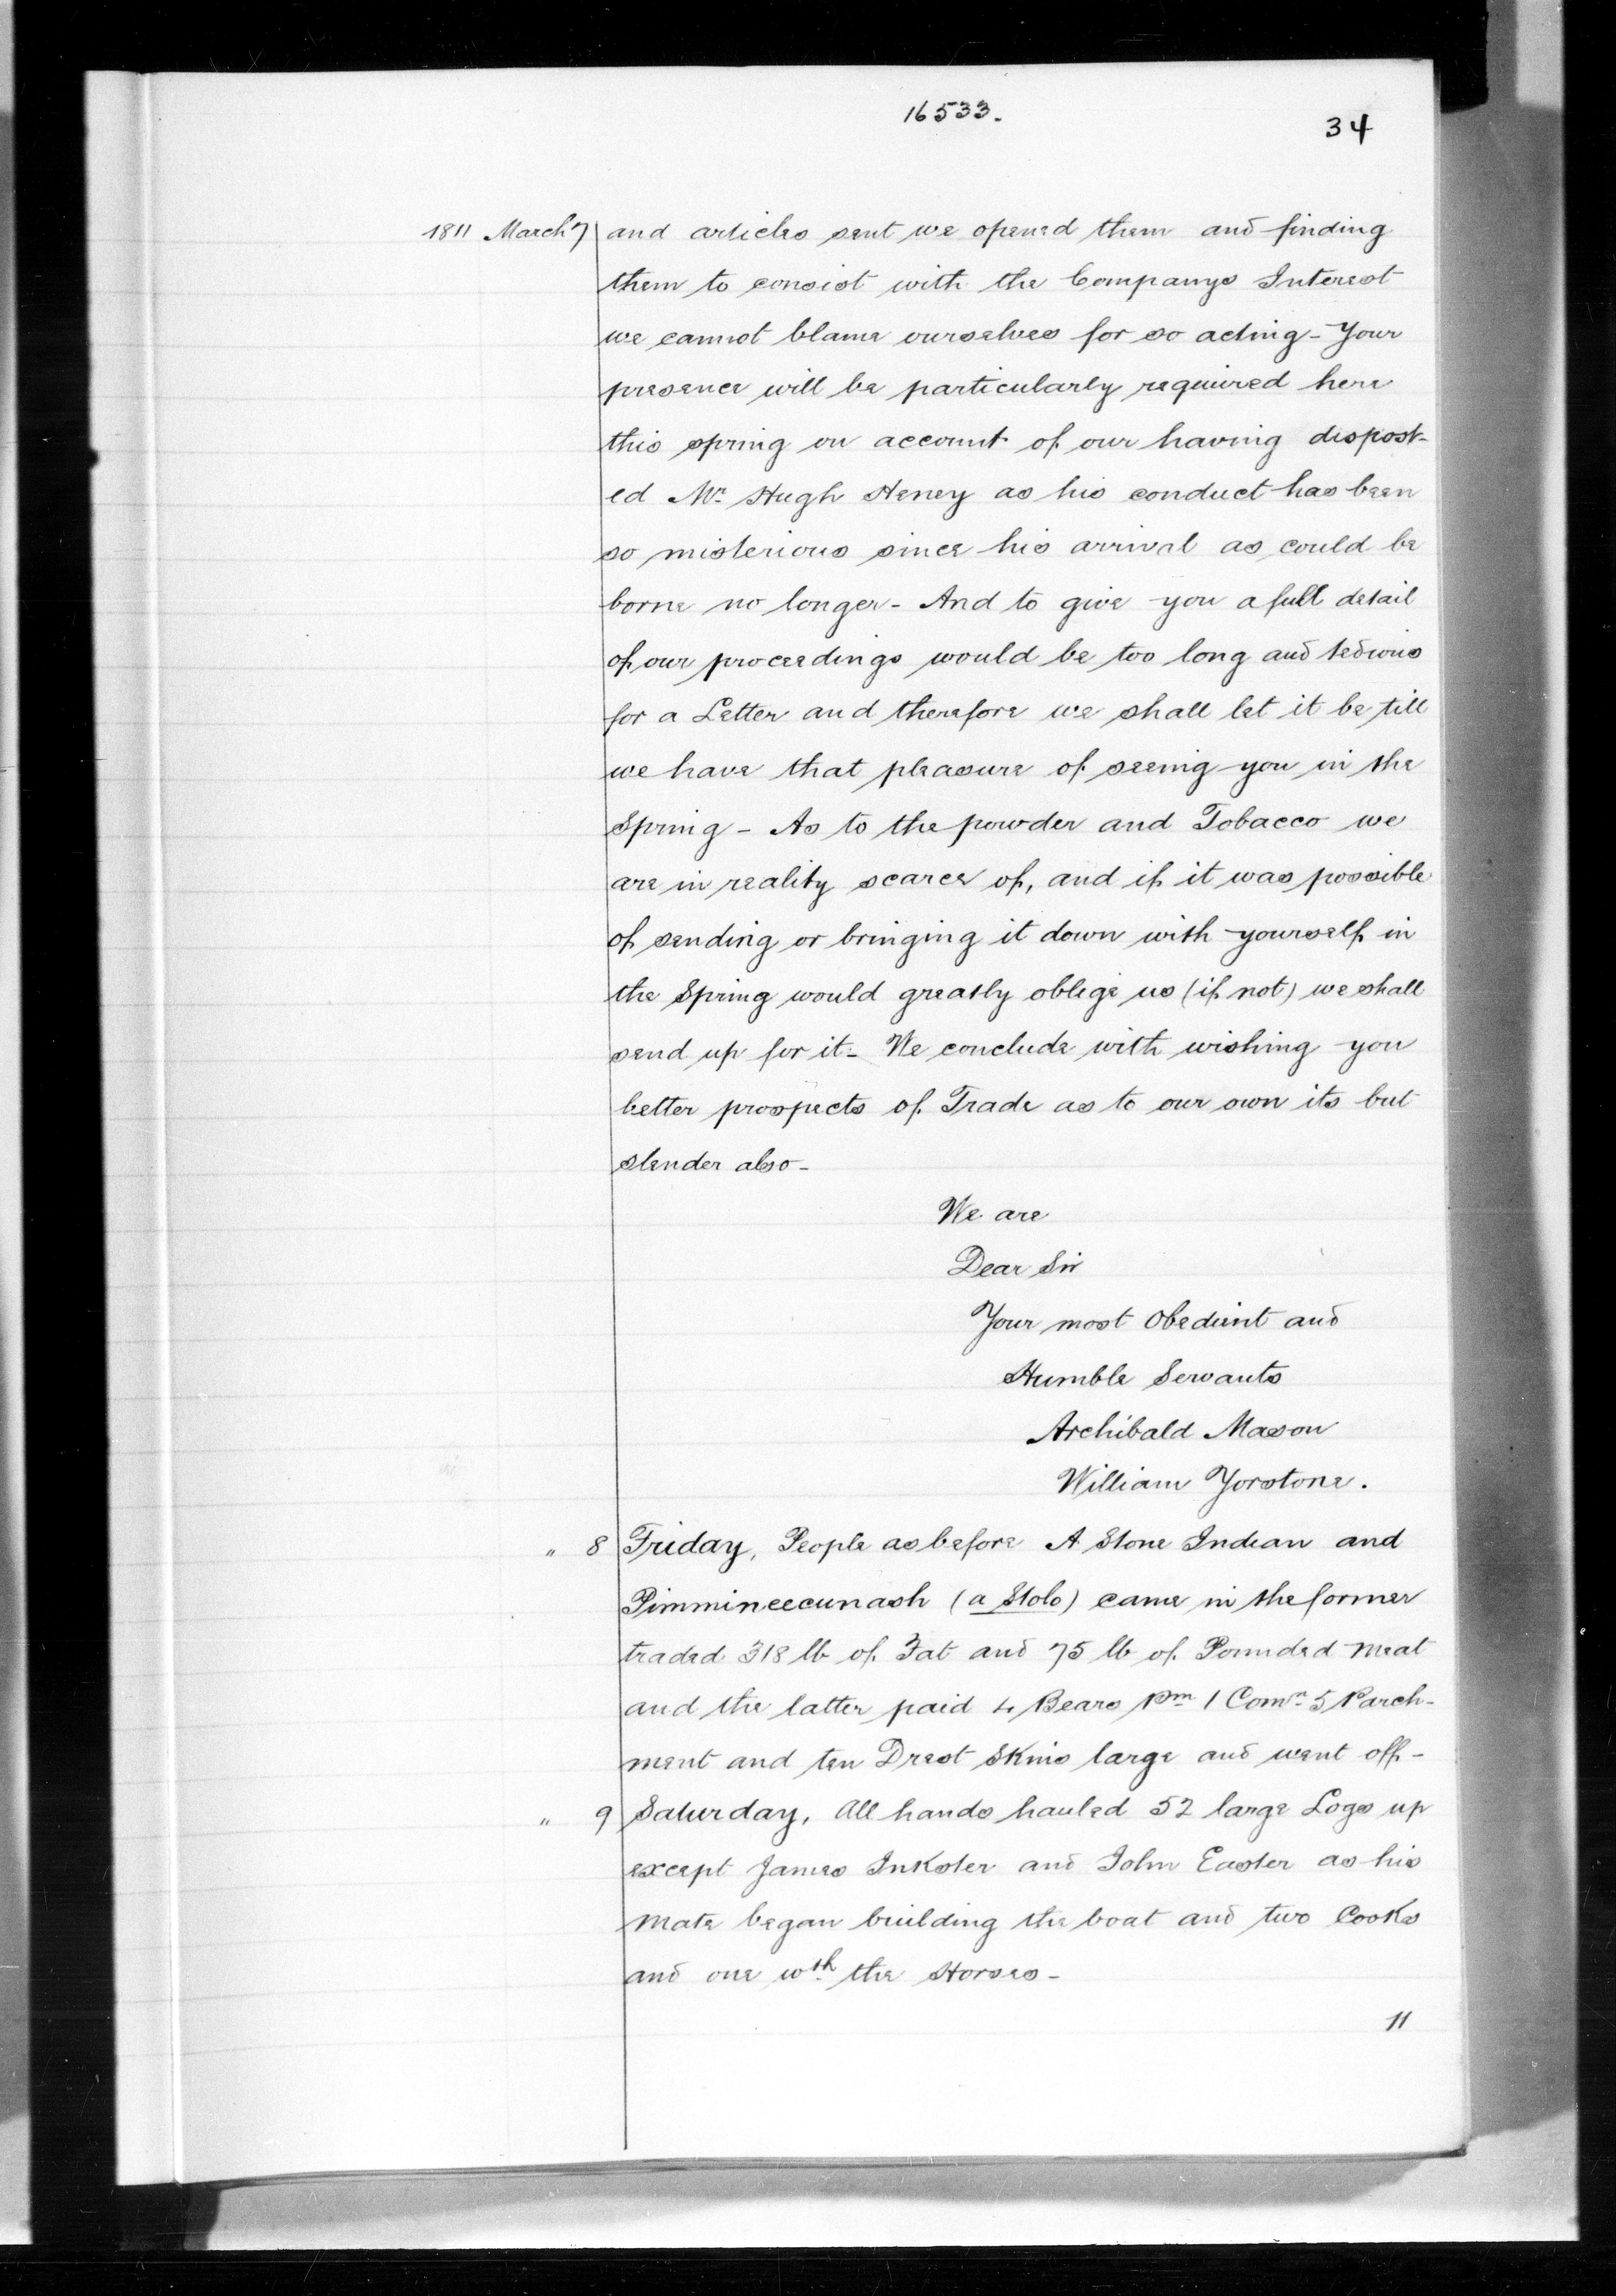 16533.
34
1811 March 7 and articles sent we opened them and finding
them to consist with the Companys Interest
we cannot blame ourselves for so acting - Your
presence will be particularly required here
this spring on account of our having dispost-
ed Mr Hugh Heney as his conduct has been
so misterious since his arrival as could be
borne no longer - And to give you a full detail
of our proceedings would be too long and tedious
for a Letter and therefore we shall let it be till
we have that pleasure of seeing you in the
Spring - As to the powder and Tobacco we
are in reality scarce of, and if it was possible
of sending or bringing it down with yourself in
the Spring would greatly oblige us (if not) we shall
send up for it - We conclude with wishing you
better prospects of Trade as to our own its but
slender also -
We are
Dear Sir
Your most Obedient and
Humble Servants
Archibald Mason
William Yorstone.
" 8 Friday, People as before A Stone Indian and
Pimmineecunash (a Stolo) came in the former
traded 318 lb of Fat and 75 lb of Pounded meat
and the latter paid 4 Bears Pm 1 Comn 5 Parch-
ment and ten Drest Skins large and went off -
" 9 Saturday, All hands hauled 52 large Logs up
except James Inkster and John Easter as his
mate began building the boat and two Cooks
and one wth the Horses -
11